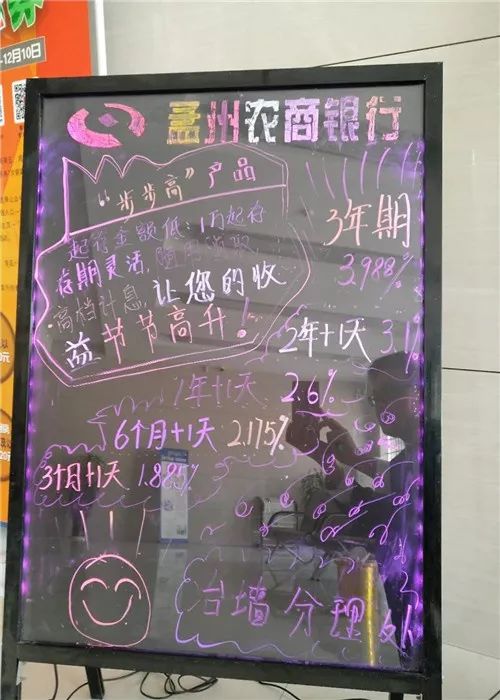 -12月10日
孟州农商银行
“步步高”产品
起存金额低：1万起存
存期灵活，随用随取，
高档计息，让您的收
益节节高升！
3年期
3.988%
2年+1天 3.1%
1年+1天 2.6%
6个月+1天 2.175%
3个月+1天 1.885%
冶墙分理处